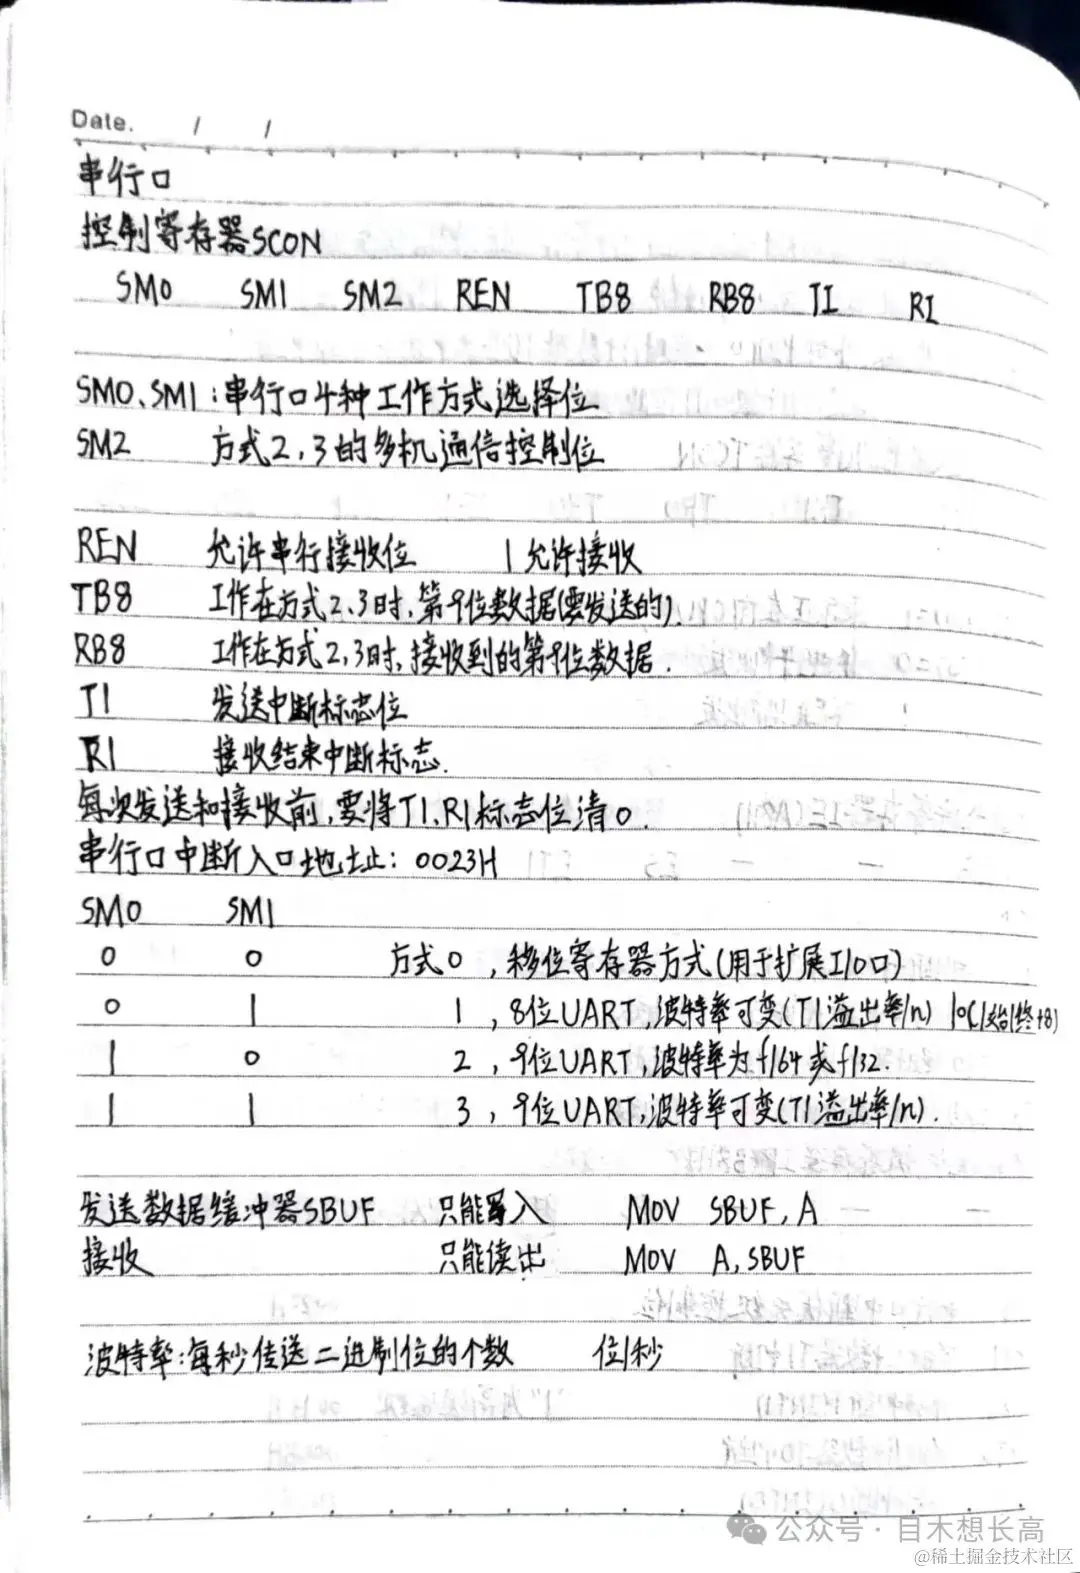 Date. / /
串行口
控制寄存器SCON
SM0 SM1 SM2 REN TB8 RB8 TI RI
SM0、SM1:串行口4种工作方式选择位
SM2 方式2,3的多机通信控制位
REN 允许串行接收位 1允许接收
TB8 工作在方式2,3时,第9位数据(要发送的).
RB8 工作在方式2,3时,接收到的第9位数据.
TI 发送中断标志位
RI 接收结束中断标志.
每次发送和接收前,要将TI、RI标志位清0.
串行口中断入口地址:0023H
SM0 SM1
0 0 方式0,移位寄存器方式(用于扩展I/O口)
0 1 1,8位UART,波特率可变(T1溢出率/n) 10(1始1终+8)
1 0 2,9位UART,波特率为f/64或f/32.
1 1 3,9位UART,波特率可变(T1溢出率/n).
发送数据缓冲器SBUF 只能写入 MOV SBUF,A
接收 只能读出 MOV A,SBUF
波特率:每秒传送二进制位的个数 位/秒
公众号·目木想长高
@稀土掘金技术社区